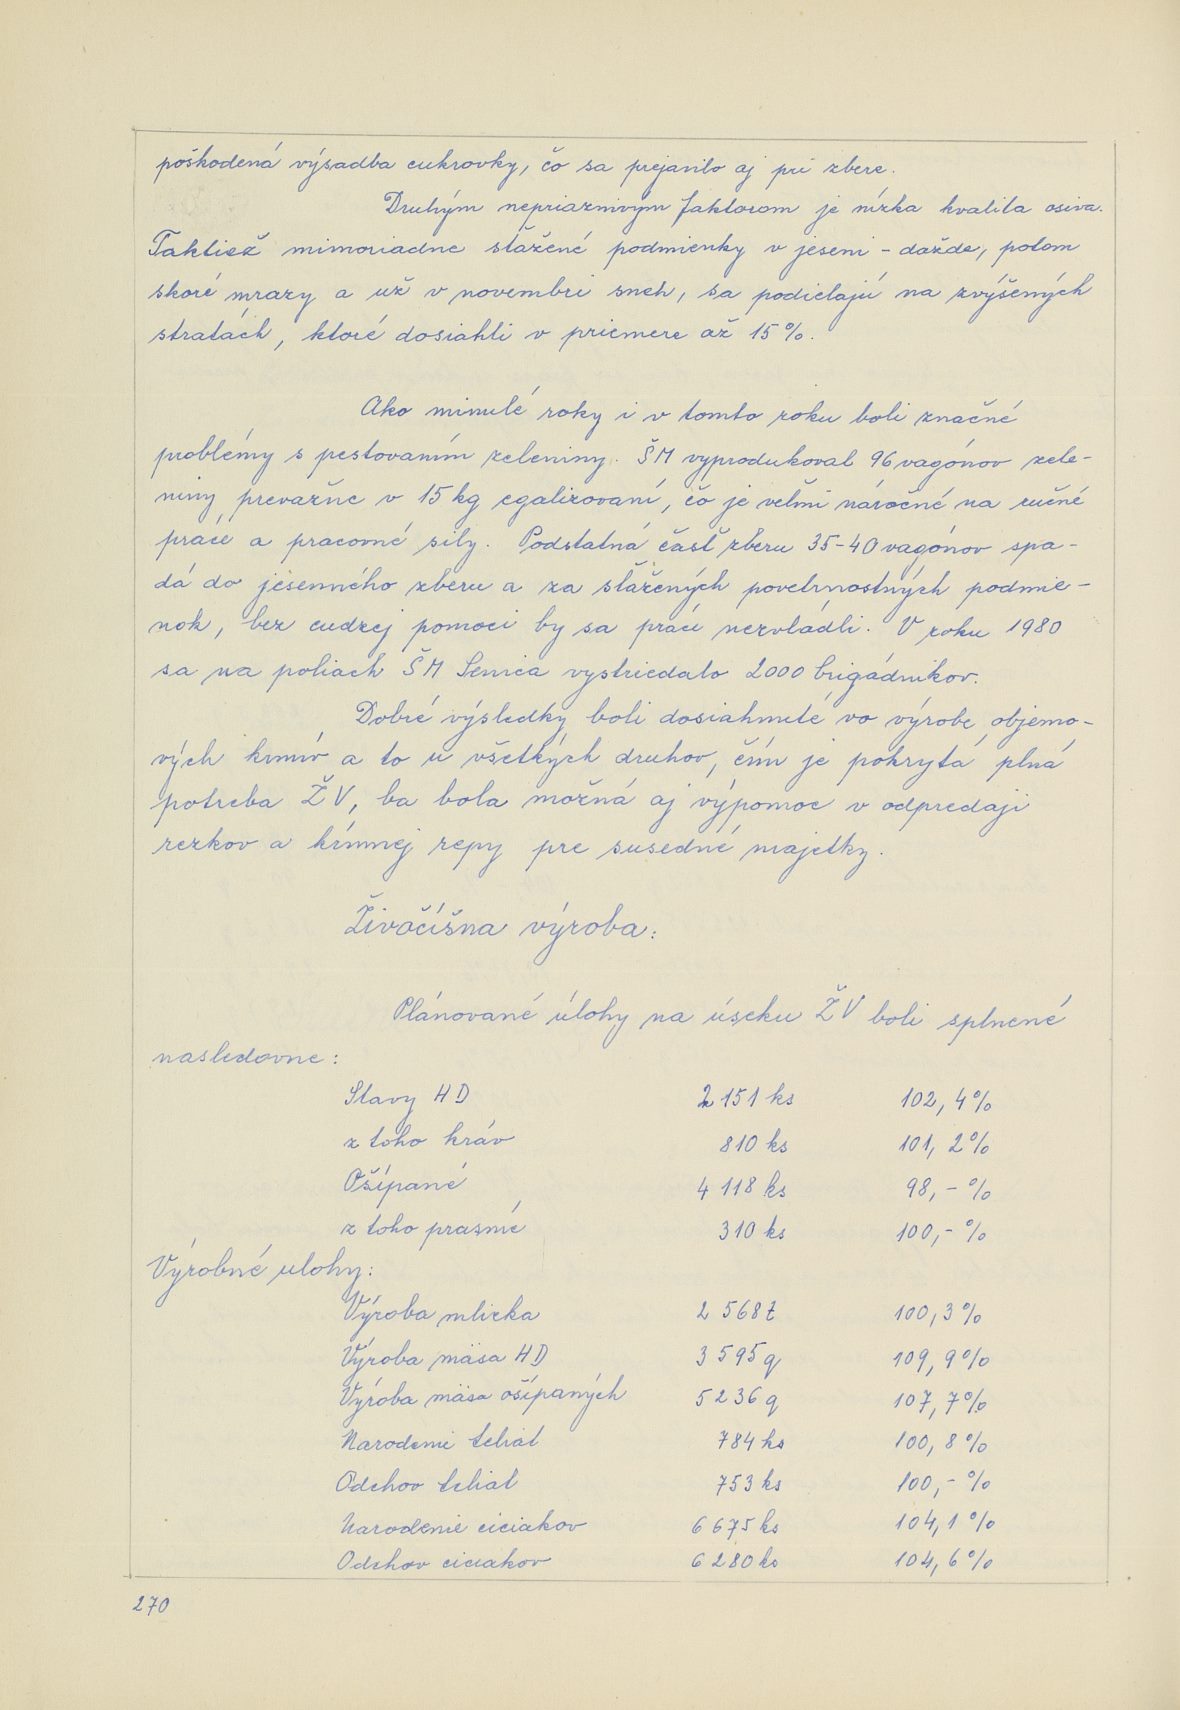 poškodená výsadba cukrovky, čo sa prejavilo aj pri zbere.
Druhým nepriaznivým faktorom je nízka kvalita osiva.
Taktiež mimoriadne sťažené podmienky v jeseni - dažde, potom
skoré mrazy a už v novembri sneh, sa podielajú na zvýšených
stratách, ktoré dosiahli v priemere až 15%.
Ako minulé roky i v tomto roku boli značné
problémy s pestovaním zeleniny. ŠM vyprodukoval 96 vagónov zele-
niny prevažne v 15 kg egalizovaní, čo je veľmi náročné na ručné
práce a pracovné sily. Podstatná časť zberu 35-40 vagónov spa-
dá do jesenného zberu a za sťažených povetrnostných podmie-
nok, bez cudzej pomoci by sa práce nezvládli. V roku 1980
sa na poliach ŠM Senica vystriedalo 2000 brigádnikov.
Dobré výsledky boli dosiahnuté vo výrobe objemo-
vých krmív a to u všetkých druhov, čím je pokrytá plná
potreba ŽV, ba bola možná aj výpomoc v odpredaji
rezkov a kŕmnej repy pre susedné majetky.
Živočíšna výroba:
Plánované úlohy na úseku ŽV boli splnené
nasledovne:
Stavy HD 2 151 ks 102,4%
z toho kráv 810 ks 101,2%
Ošípané 4 118 ks 98,- %
z toho prasníc 310 ks 100,- %
Výrobné ulohy:
Výroba mlieka 2 568 t 100,3%
Výroba mäsa HD 3 595 q 109,9%
Výroba mäsa ošípaných 5 236 q 107,7%
Narodenie teliat 784 ks 100,8%
Odchov teliat 753 ks 100,- %
Narodenie ciciakov 6 675 ks 104,1%
Odchov ciciakov 6 280 ks 104,6%
270